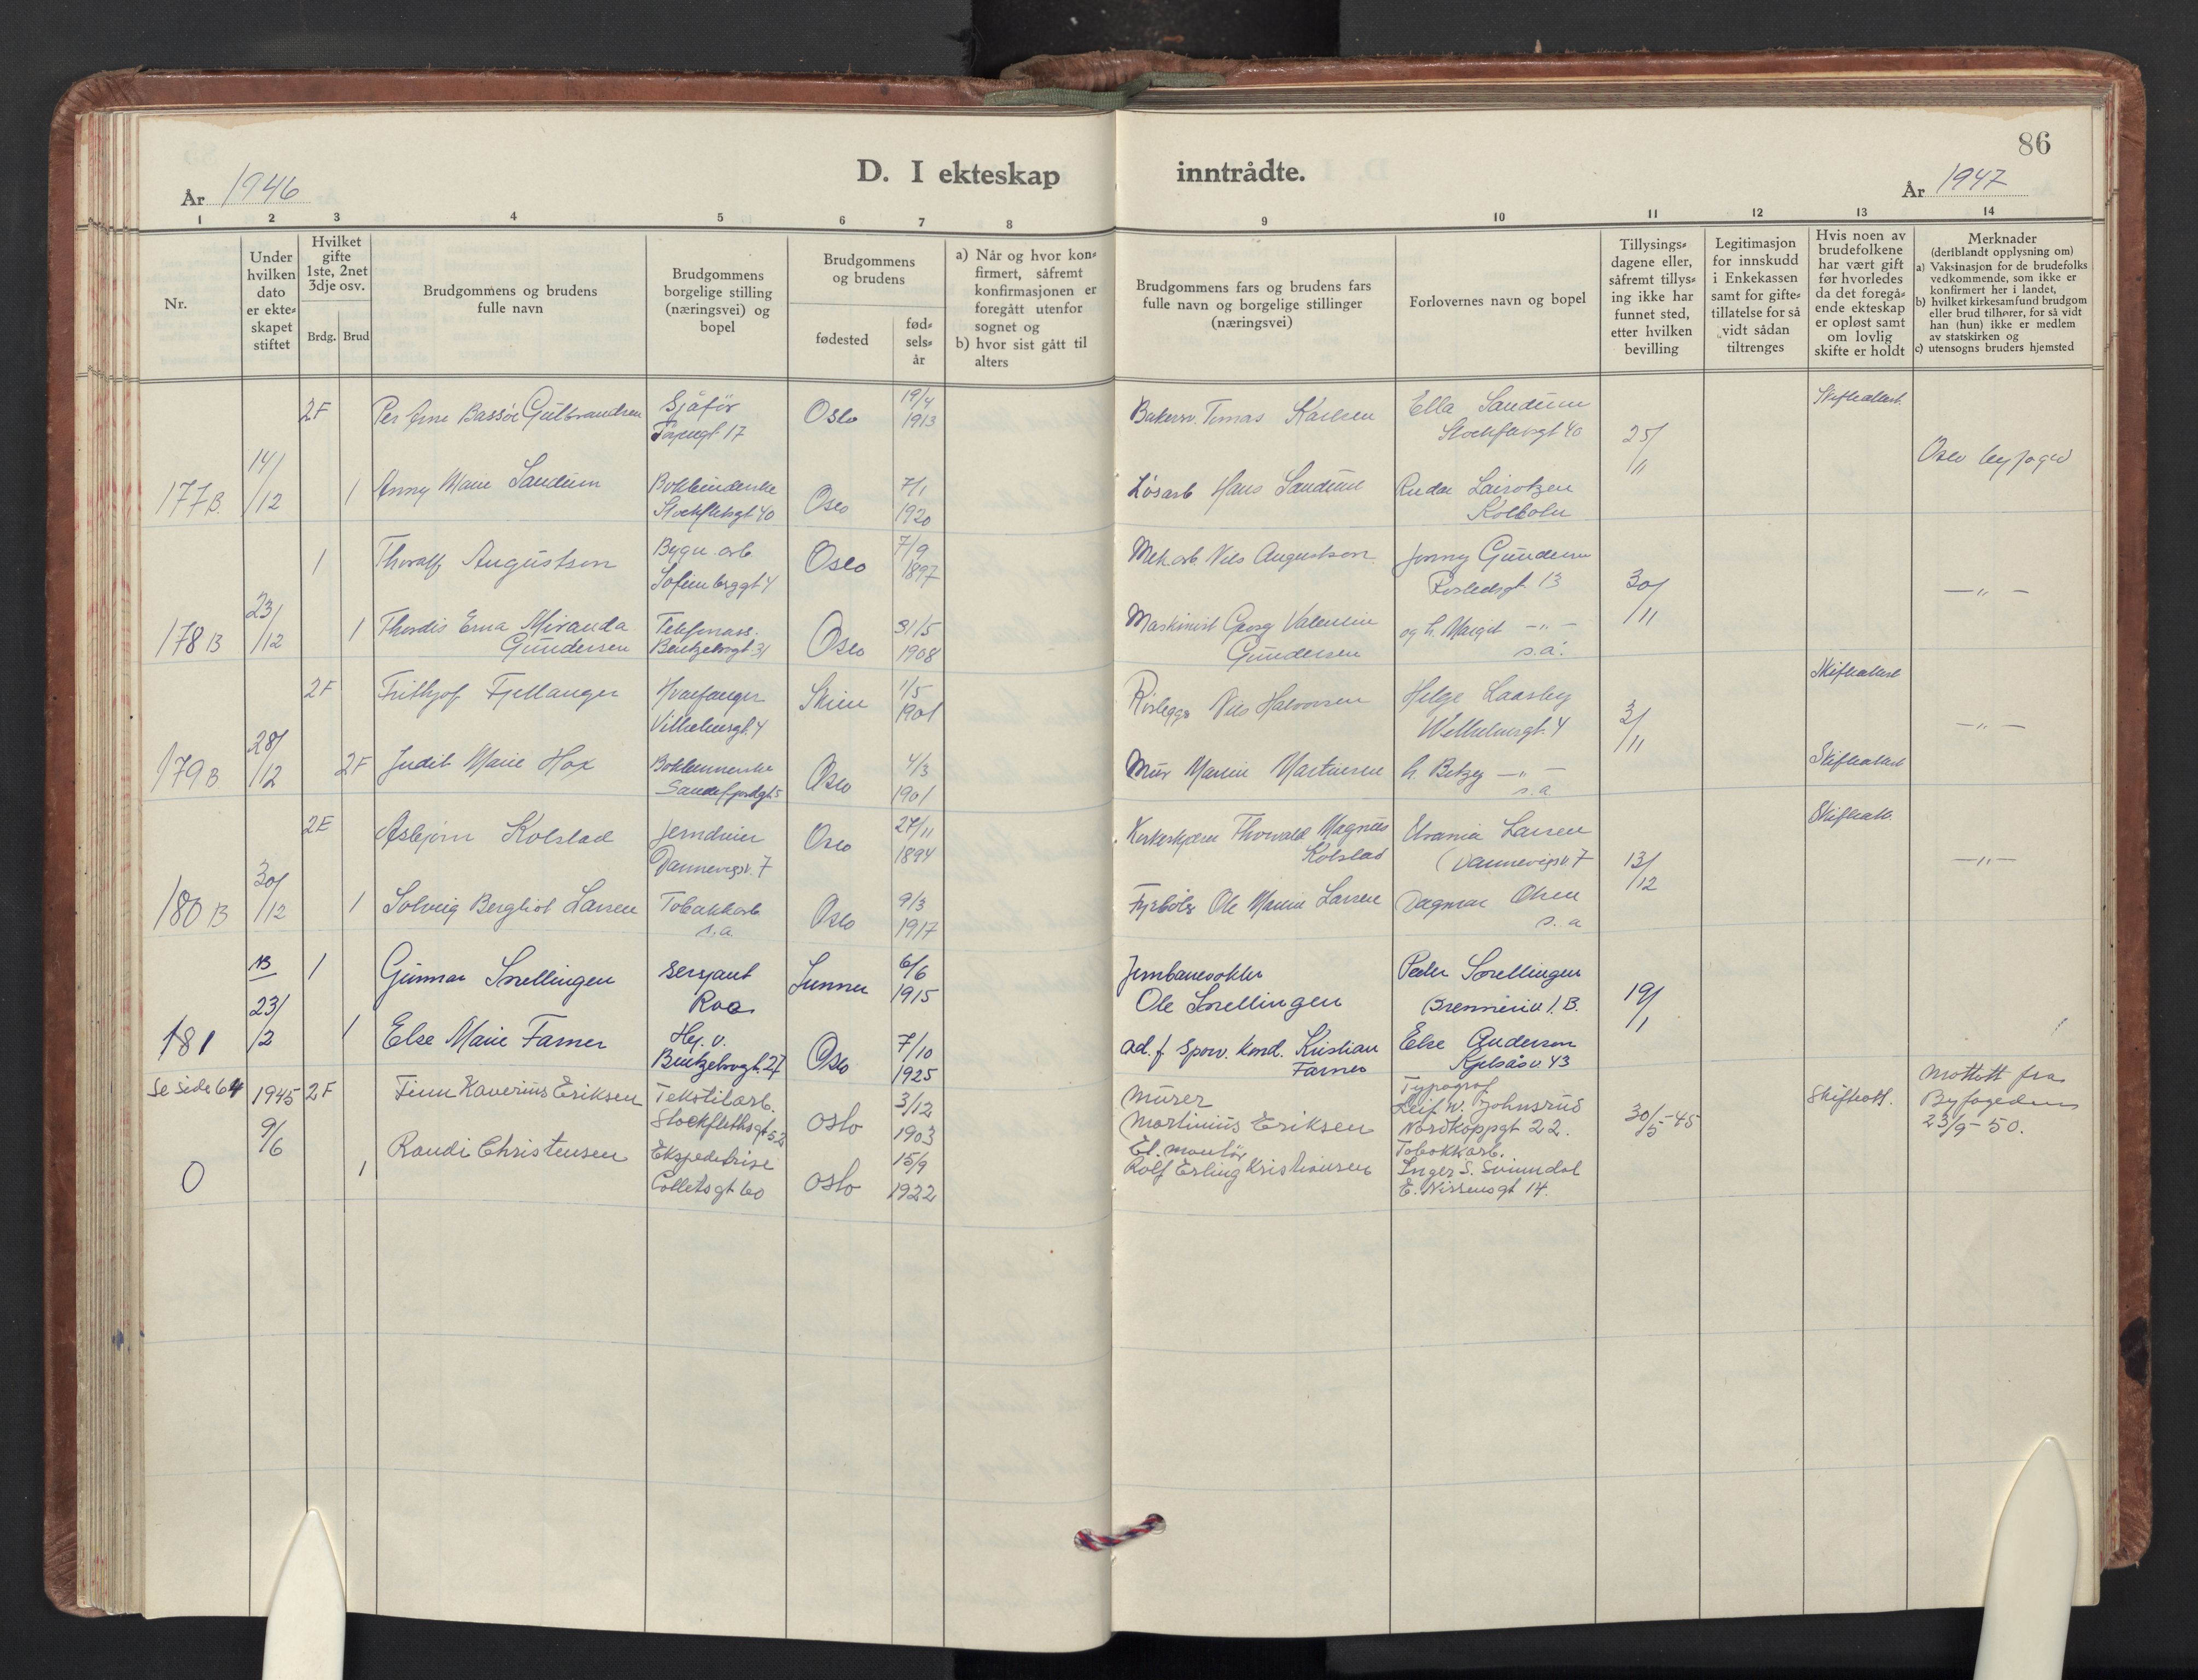 86
D. I ekteskap inntrådte.
År 1946
År 1947
1 2 3 4 5 6 7 8 9 10 11 12 13 14
Nr.
Under hvilken dato er ekte-skapet stiftet
Hvilket gifte 1ste, 2net 3dje osv.
Brdg. Brud
Brudgommens og brudens fulle navn
Brudgommens borgelige stilling (næringsvei) og bopel
Brudgommens og brudens
fødested
fød-sels-år
a) Når og hvor kon-firmert, såfremt konfirmasjonen er foregått utenfor sognet og
b) hvor sist gått til alters
Brudgommens fars og brudens fars fulle navn og borgelige stillinger (næringsvei)
Forlovernes navn og bopel
Tillysings-dagene eller, såfremt tillys-ing ikke har funnet sted, etter hvilken bevilling
Legitimasjon for innskudd i Enkekassen samt for gifte-tillatelse for så vidt sådan tiltrenges
Hvis noen av brudefolkene har vært gift før hvorledes da det foregå-ende ekteskap er opløst samt om lovlig skifte er holdt
Merknader
(deriblandt opplysning om)
a) Vaksinasjon for de brudefolks vedkommende, som ikke er konfirmert her i landet,
b) hvilket kirkesamfund brudgom eller brud tilhører, for så vidt han (hun) ikke er medlem av statskirken og
c) utensogns bruders hjemsted
2F Per Arne Bassøe Gulbrandsen Sjåfør Oslo 19/4 1913 Tomas Karlsen Ella Sandum Skifteattest
Stockflethsgt 40 25/11
177 B. 14/12 1 Anny Marie Sandum Bokbinderske Oslo 7/1 1920 Løsarb Hans Sandum Oslo byfoged
Stockflethsgt 40
1 Thoralf Augustson Bygn. arb Oslo 7/9 1897 Mek arb. Nils Augustson Jenny Gundersen
Sofienberggt 4 13 30/11 — " —
178 B 23/12 1 Thordis Erna Miranda Gundersen Telefonass. Oslo 31/5 1908 Maskinist Georg Valentin Gundersen og h. Margit — " —
Bentzebrogt 31 s.a.
2F Frithjof Fjellanger Hvalfanger Skien 1/5 1901 Rørlegger Nils Halvorsen Helge Laasby Skifteattest
Vilhelmsgt. 4 Wilhelmsgt. 4 3/11 — " —
179 B 28/12 2F Judit Marie Hox Oslo 4/3 1901 Mur Martin Martinsen h. Betzy — " — Skifteattest
Sandefjordgt. 5 s.a
2F Asbjørn Kolstad Jerndreier Oslo 27/11 1894 Thorvald Magnus Kolstad Larsen Skifteatt.
Dannevigsv. 7 Dannevigsv. 7 13/12 — " —
180 B 30/12 1 Solveig Bergliot Larsen Tobakkarb Oslo 9/3 1917 Fyrbøter Ole Martin Larsen Dagmar Olsen
s.a. s. a
N3 1 Gunnar Snellingen sersjant Lunner 6/6 1915 Jernbanevokter Ole Snellingen Peder Snellingen
Roa 1. B. 19/1
181 23/2 1 Else Marie Farner Hj. v. Oslo 7/10 1925 ad. f. sporv. kond. Kristian Farner Else Anderson
Bentzebrogt. 27 Kjelsåsv. 43
Se side 64 1945 2F Finn Xaverius Eriksen Tekstilarb. Oslo 3/12 1903 Murer Martinius Eriksen Typograf Leif W. Johnsrud 30/5-45 Skifteatt. Mottatt fra Byfogeden 23/9-50.
9/6 Stockflethsgt 52 Nordkappgt 22.
0 1 Randi Christensen Ekspeditrise Oslo 15/9 1922 El. montør Rolf Erling Kristiansen Tobakkarb. Inger S. Svinndal
Colletsgt 60 E. Nissensgt 14.